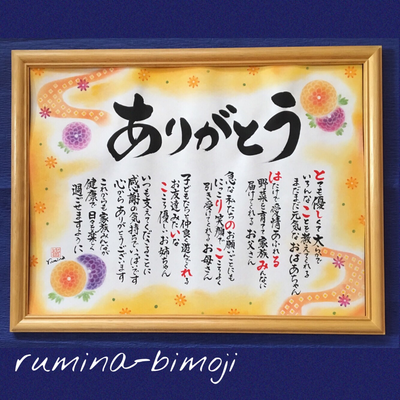 ありがとう
とても優しくて大らかで
いろんなことを教えてくれる
まだまだ元気なおばあちゃん
はたけで愛情あふれる
野菜を育てて家族みんなに
届けてくれるお父さん
急な私たちのお願いごとにも
にっこり笑顔でこころよく
引き受けてくれるお母さん
子どもたちと仲良く遊んでくれる
お友達みたいな
こころ優しいお姉ちゃん
いつも支えてくださることに
感謝の気持ちでいっぱいです
心からありがとうございます
これからも家族みんなが
健康で日々を楽しく
過ごせますように
Rumina
rumina-bimoji